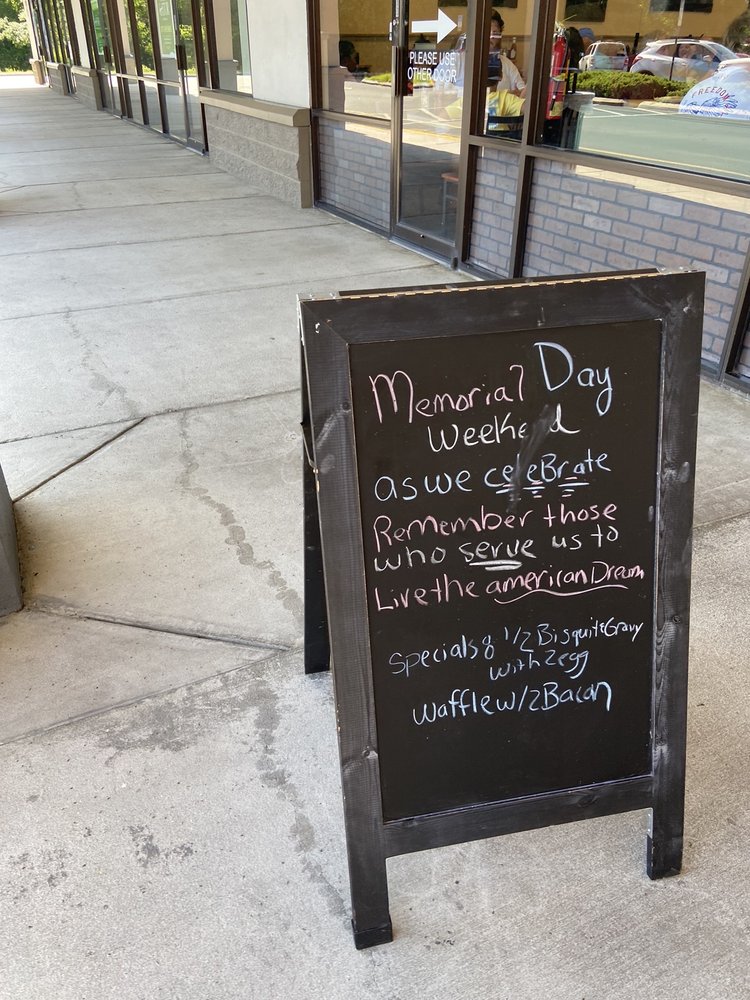 PLEASE USE
OTHER DOOR
FREEDOM
Memorial Day
Weekend
as we celeBrate
Remember those
who serve us to
Live the american Dream
Specials 8 1/2 Bisquit&Gravy
with 2 egg
waffle w/2 Bacon